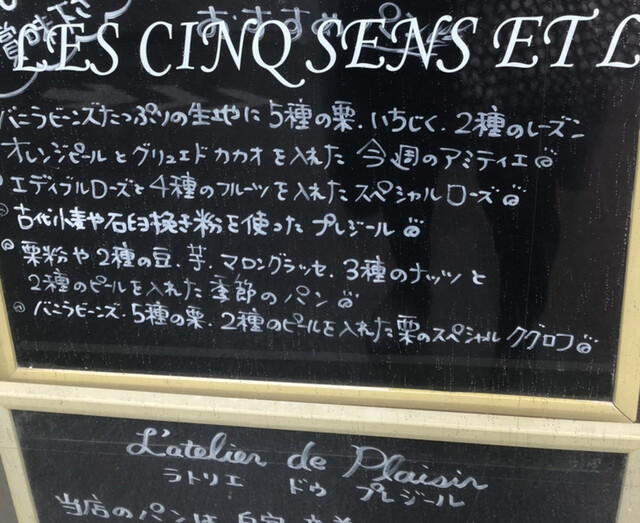 賞味
おすすめパン
LES CINQ SENS ET L
バニラビーンズたっぷりの生地に5種の栗、いちじく、2種のレーズン
オレンジピールとグリュエドカカオを入れた 今週のアミティエ
エディブルローズと4種のフルーツを入れたスペシャルローズ
古代小麦や石臼挽き粉を使ったプレジール
栗粉や2種の豆、芋、マロングラッセ、3種のナッツと
2種のピールを入れた季節のパン
バニラビーンズ、5種の栗、2種のピールを入れた栗のスペシャルクグロフ
L'atelier de Plaisir
ラトリエ ドゥ プレジール
当店のパンは自家